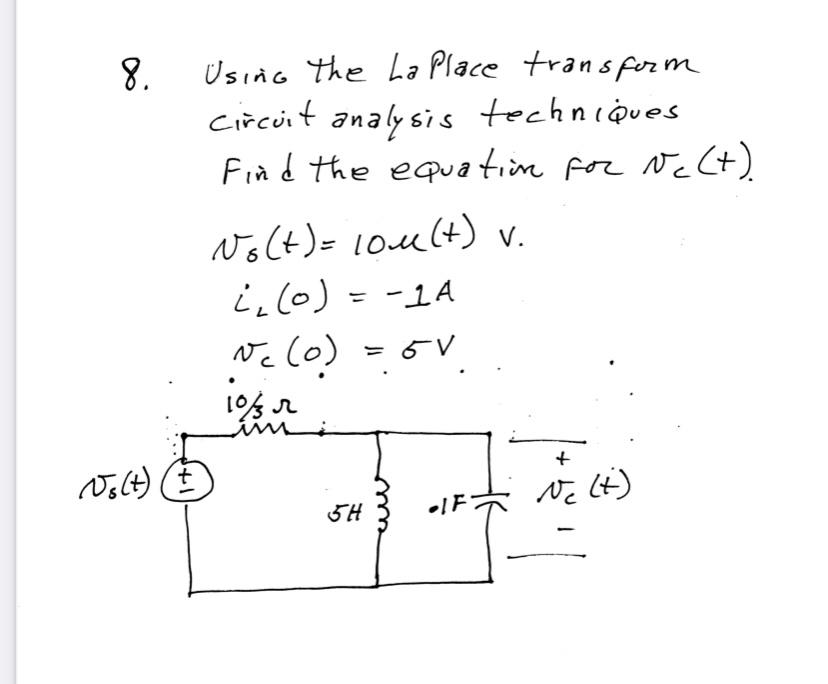 8. Using the LaPlace transform
circuit analysis techniques
Find the equation for vc(t).
vs(t) = 10u(t) v.
iL(0) = -1A
vc(0) = 5V
10/3 Ω
vs(t)
+
-
5H
.1F
+
vc(t)
-